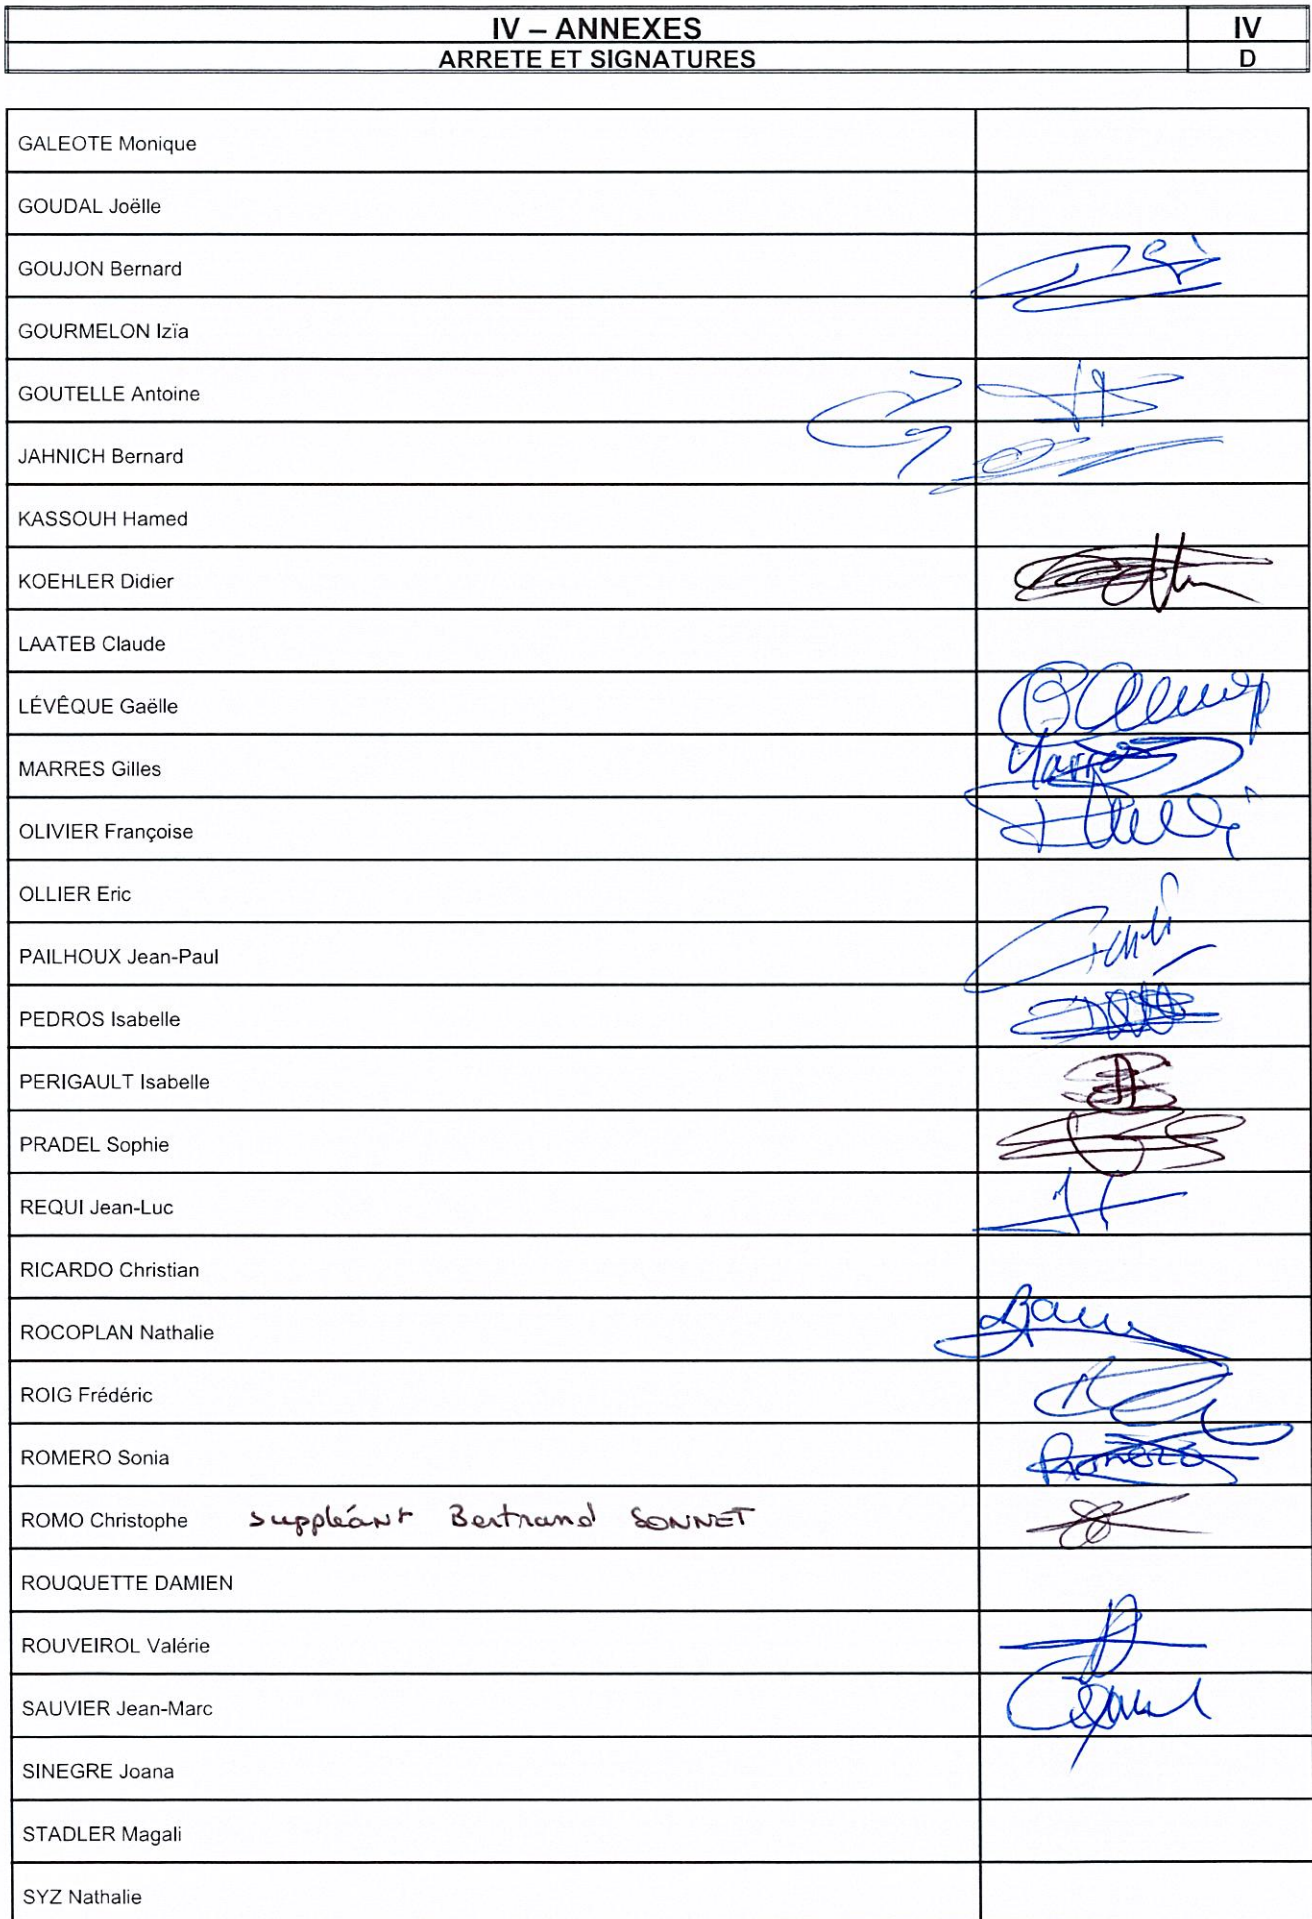 IV – ANNEXES
IV
ARRETE ET SIGNATURES
D
GALEOTE Monique
GOUDAL Joëlle
GOUJON Bernard
GOURMELON Izïa
GOUTELLE Antoine
JAHNICH Bernard
KASSOUH Hamed
KOEHLER Didier
LAATEB Claude
LÉVÊQUE Gaëlle
MARRES Gilles
OLIVIER Françoise
OLLIER Eric
PAILHOUX Jean-Paul
PEDROS Isabelle
PERIGAULT Isabelle
PRADEL Sophie
REQUI Jean-Luc
RICARDO Christian
ROCOPLAN Nathalie
ROIG Frédéric
ROMERO Sonia
ROMO Christophe suppléant Bertrand SONNET
ROUQUETTE DAMIEN
ROUVEIROL Valérie
SAUVIER Jean-Marc
SINEGRE Joana
STADLER Magali
SYZ Nathalie